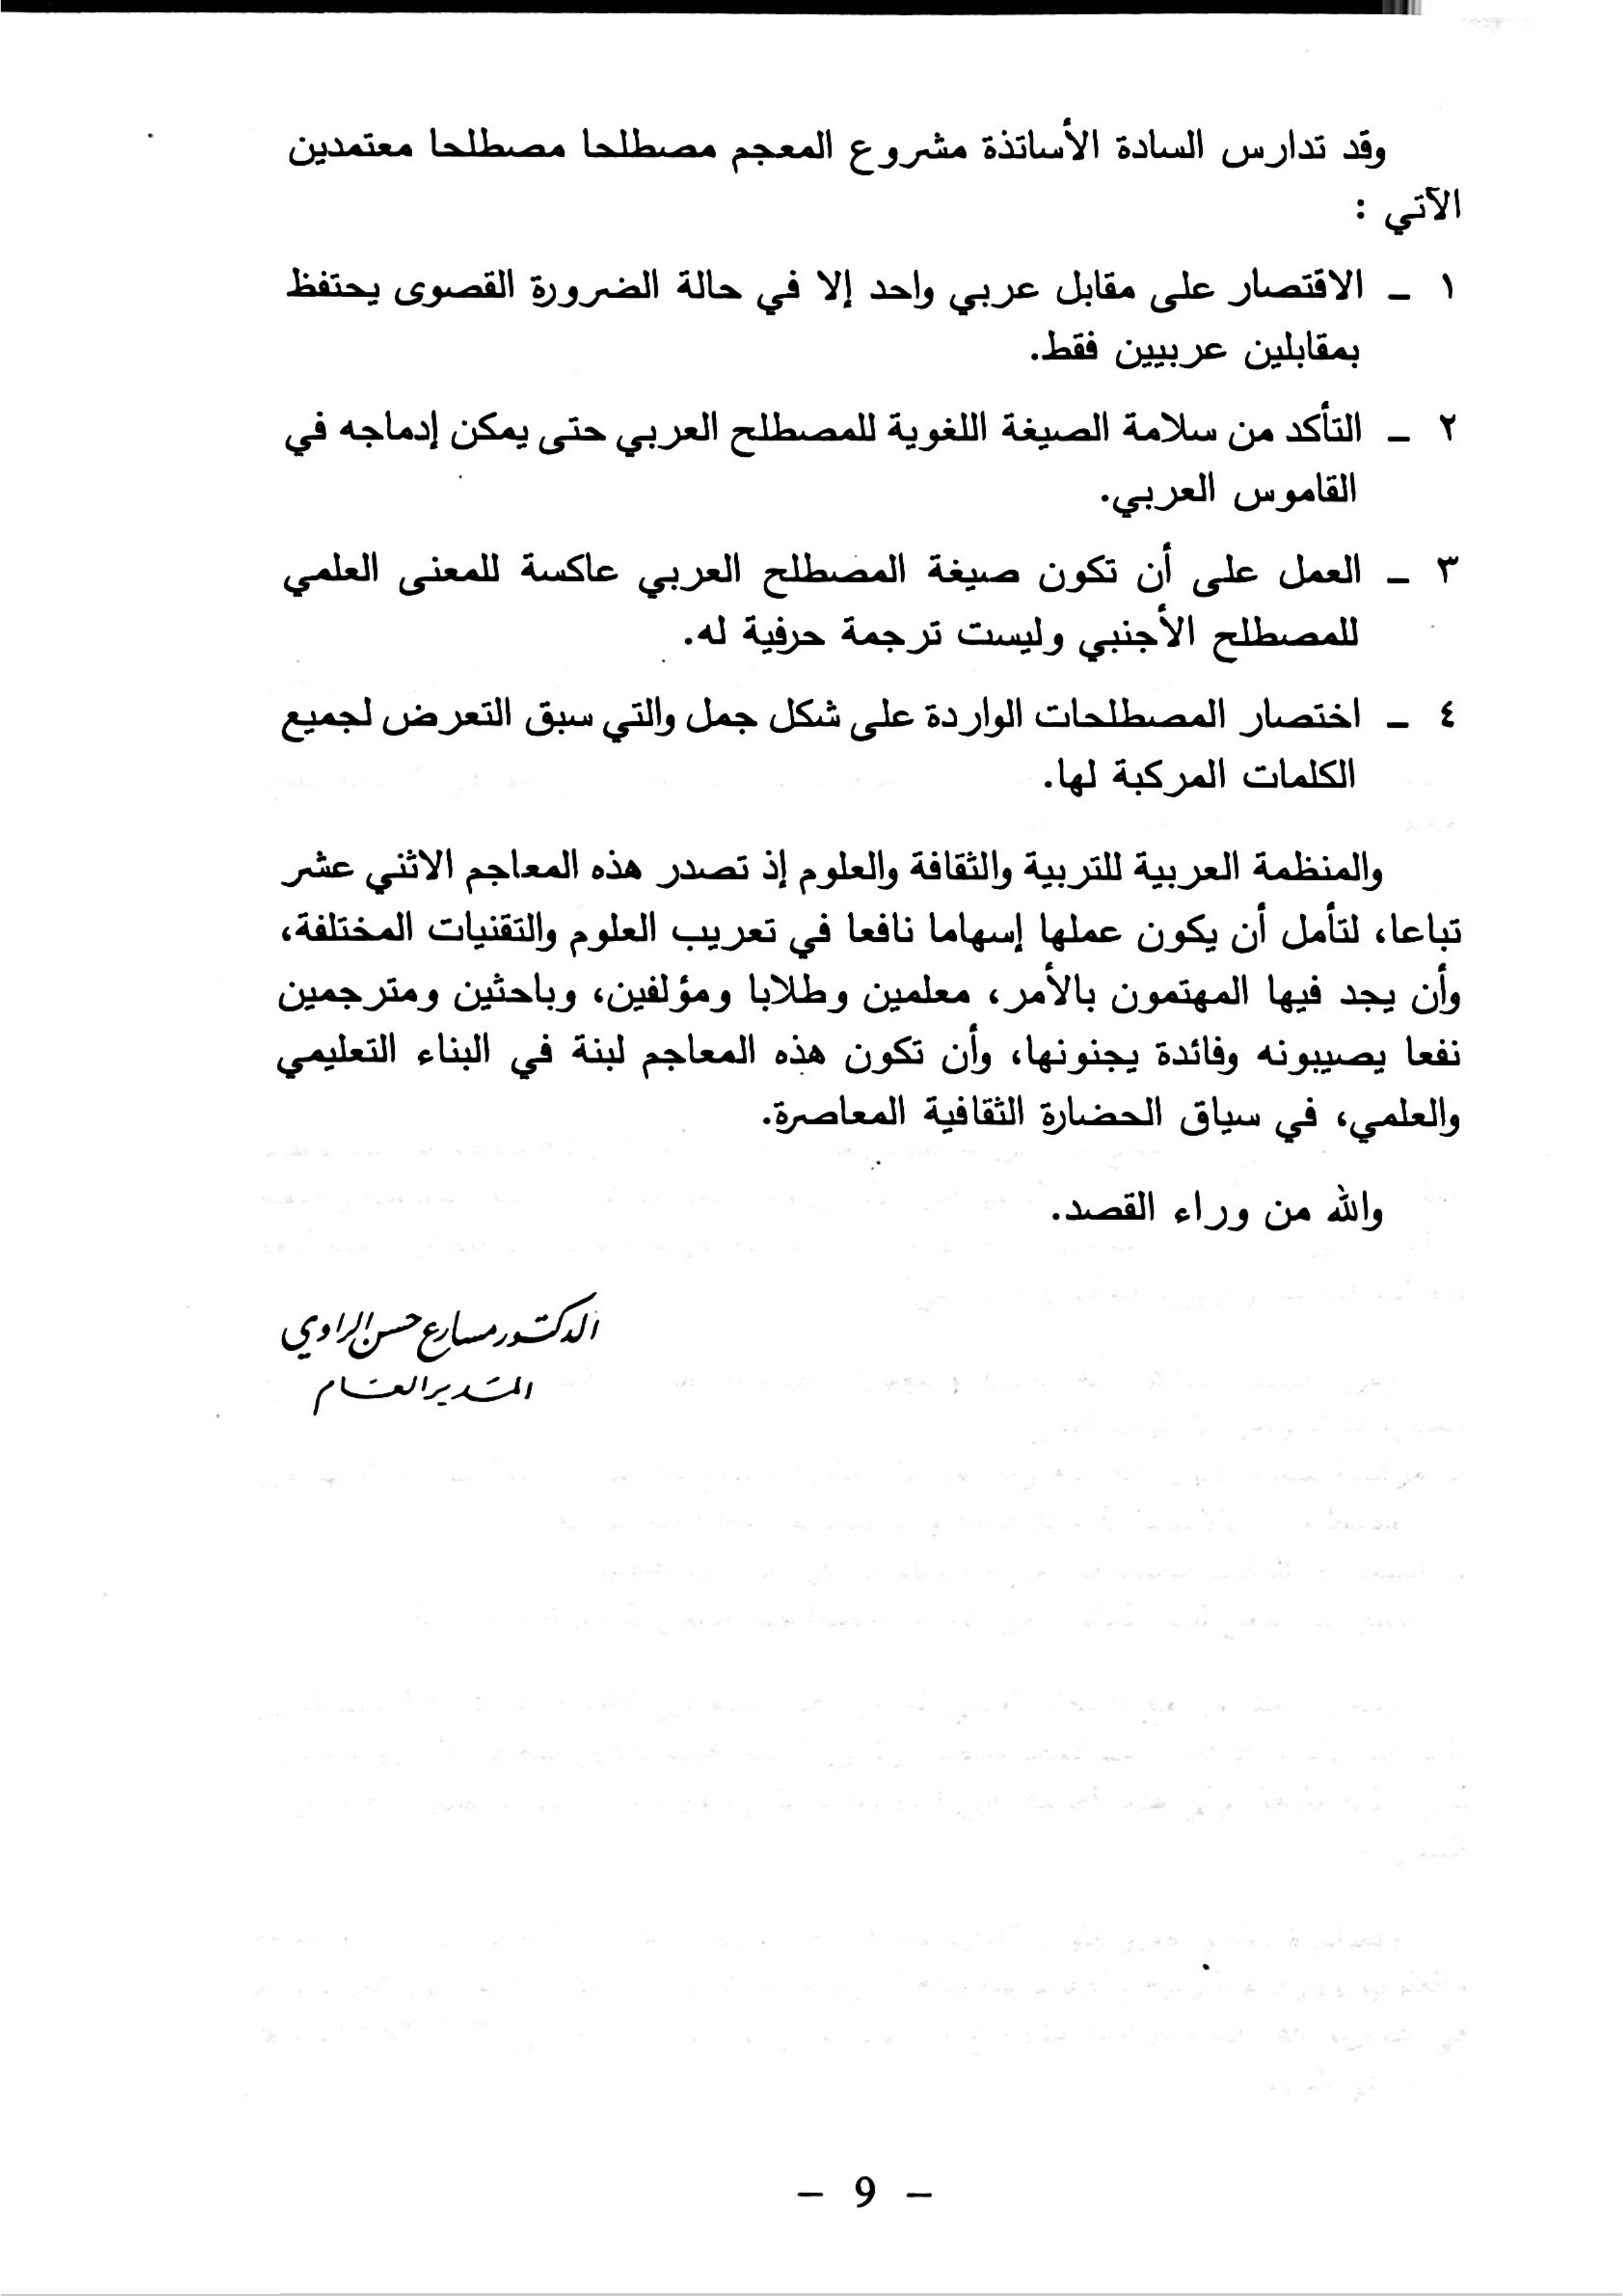 وقد تدارس السادة الأساتذة مشروع المعجم مصطلحا مصطلحا معتمدين
الآتي :
١ ـ الاقتصار على مقابل عربي واحد إلا في حالة الضرورة القصوى يحتفظ
بمقابلين عربيين فقط.
٢ ـ التأكد من سلامة الصيغة اللغوية للمصطلح العربي حتى يمكن إدماجه في
القاموس العربي.
٣ ـ العمل على أن تكون صيغة المصطلح العربي عاكسة للمعنى العلمي
للمصطلح الأجنبي وليست ترجمة حرفية له.
٤ ـ اختصار المصطلحات الواردة على شكل جمل والتي سبق التعرض لجميع
الكلمات المركبة لها.
والمنظمة العربية للتربية والثقافة والعلوم إذ تصدر هذه المعاجم الاثني عشر
تباعا، لتأمل أن يكون عملها إسهاما نافعا في تعريب العلوم والتقنيات المختلفة،
وأن يجد فيها المهتمون بالأمر، معلمين وطلابا ومؤلفين، وباحثين ومترجمين
نفعا يصيبونه وفائدة يجنونها، وأن تكون هذه المعاجم لبنة في البناء التعليمي
والعلمي، في سياق الحضارة الثقافية المعاصرة.
والله من وراء القصد.
الدكتور مسارع حسن الراوي
المدير العام
- 9 -